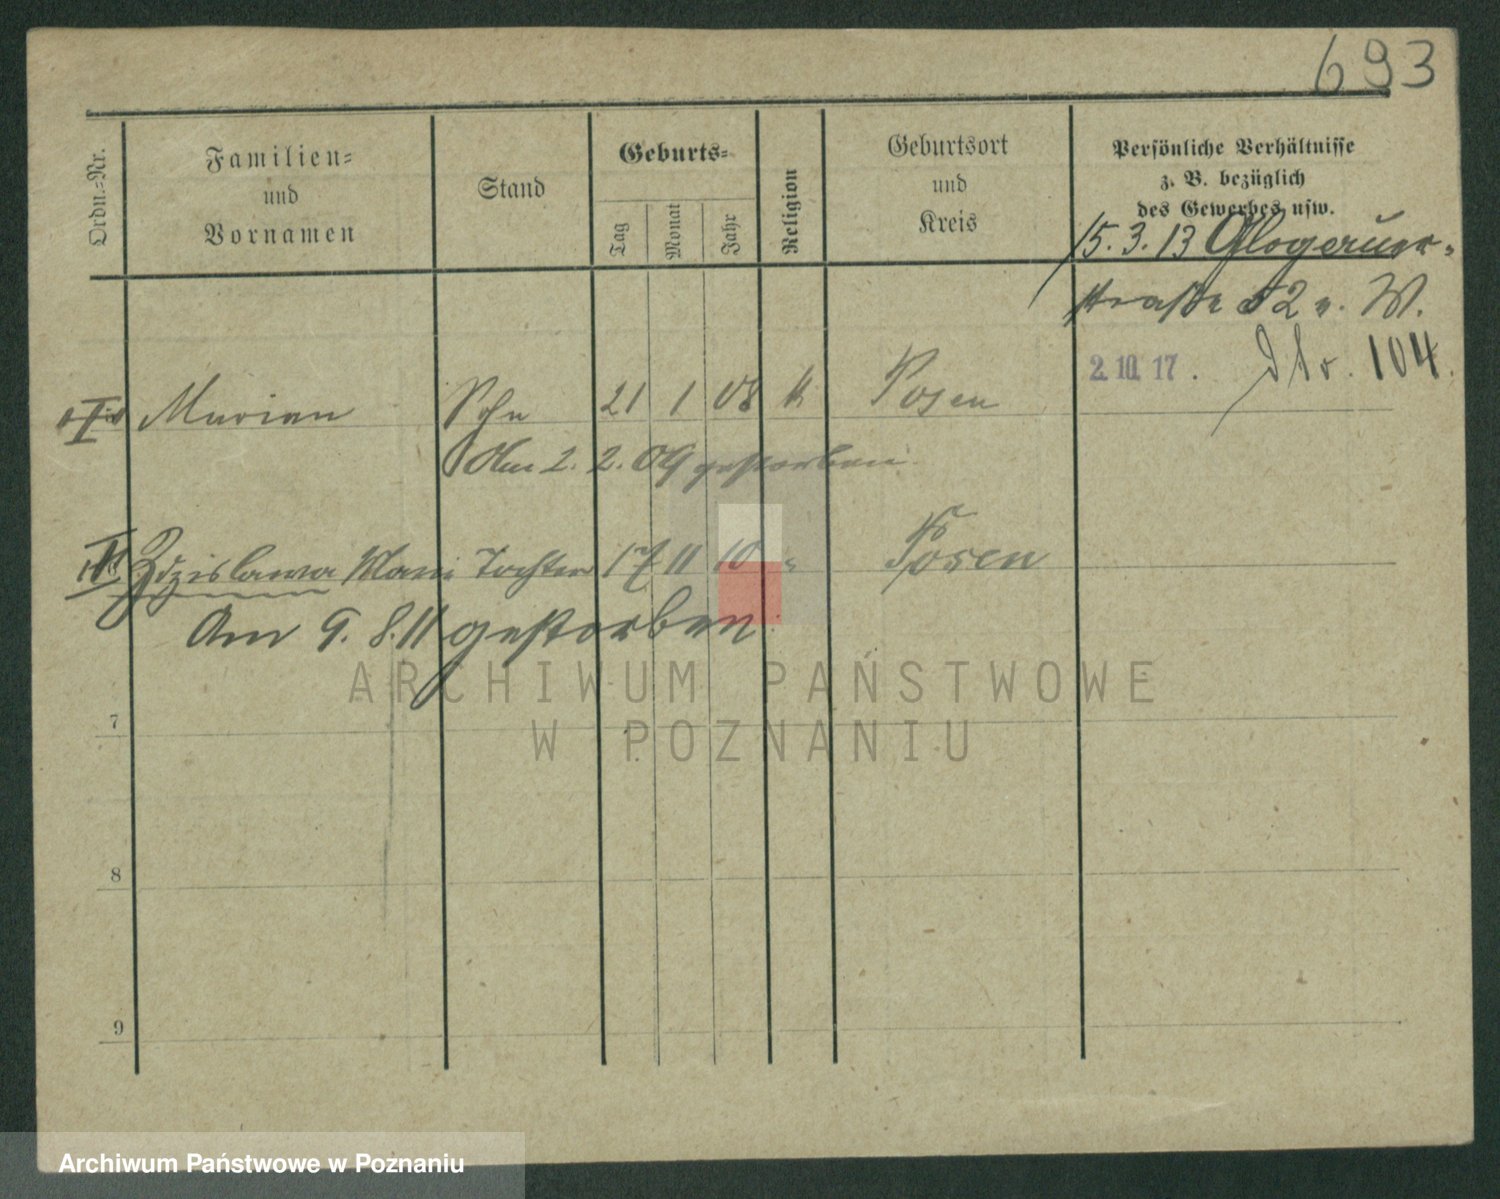 693
Ordn.-Nr.
Familien-
und
Vornamen
Stand
Geburts-
Tag
Monat
Jahr
Religion
Geburtsort
und
Kreis
Persönliche Verhältnisse
z. B. bezüglich
des Gewerbes usw.
15.3.13 Glogauer-
straße 52 v. W.
2.10.17. dto. 104.
I Marian Sohn 21 1 08 k Posen
Am 2. 2. 09 gestorben
II Zdzislawa Tochter 17 11 10 " Posen
Am 9. 8. 11 gestorben
7
8
9
ARCHIWUM PAŃSTWOWE
W POZNANIU
Archiwum Państwowe w Poznaniu